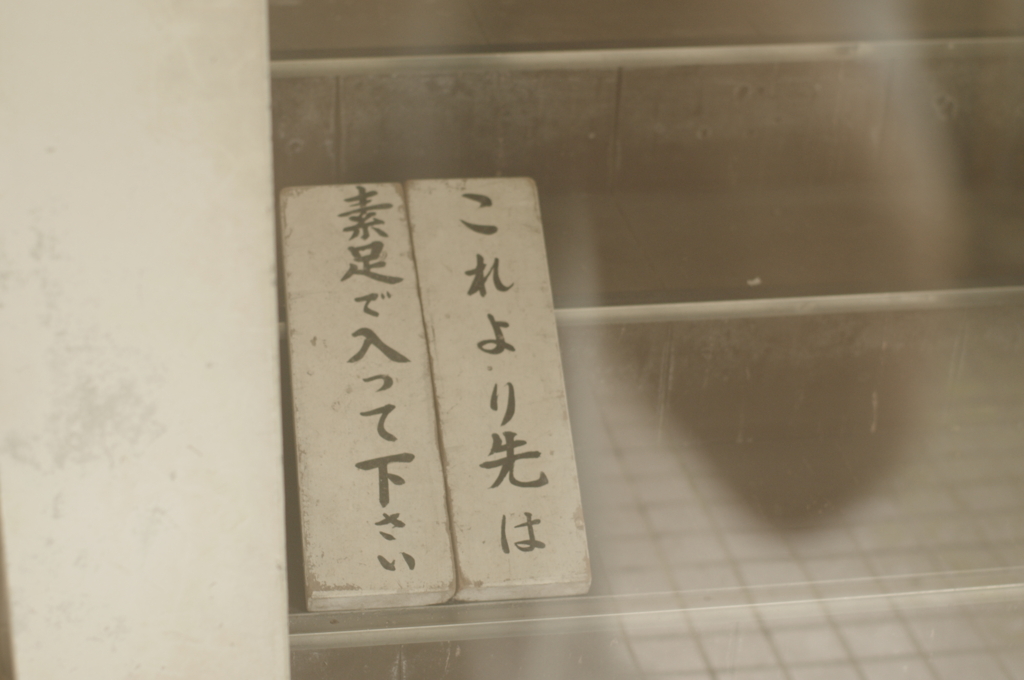 これより先は
素足で入って下さい